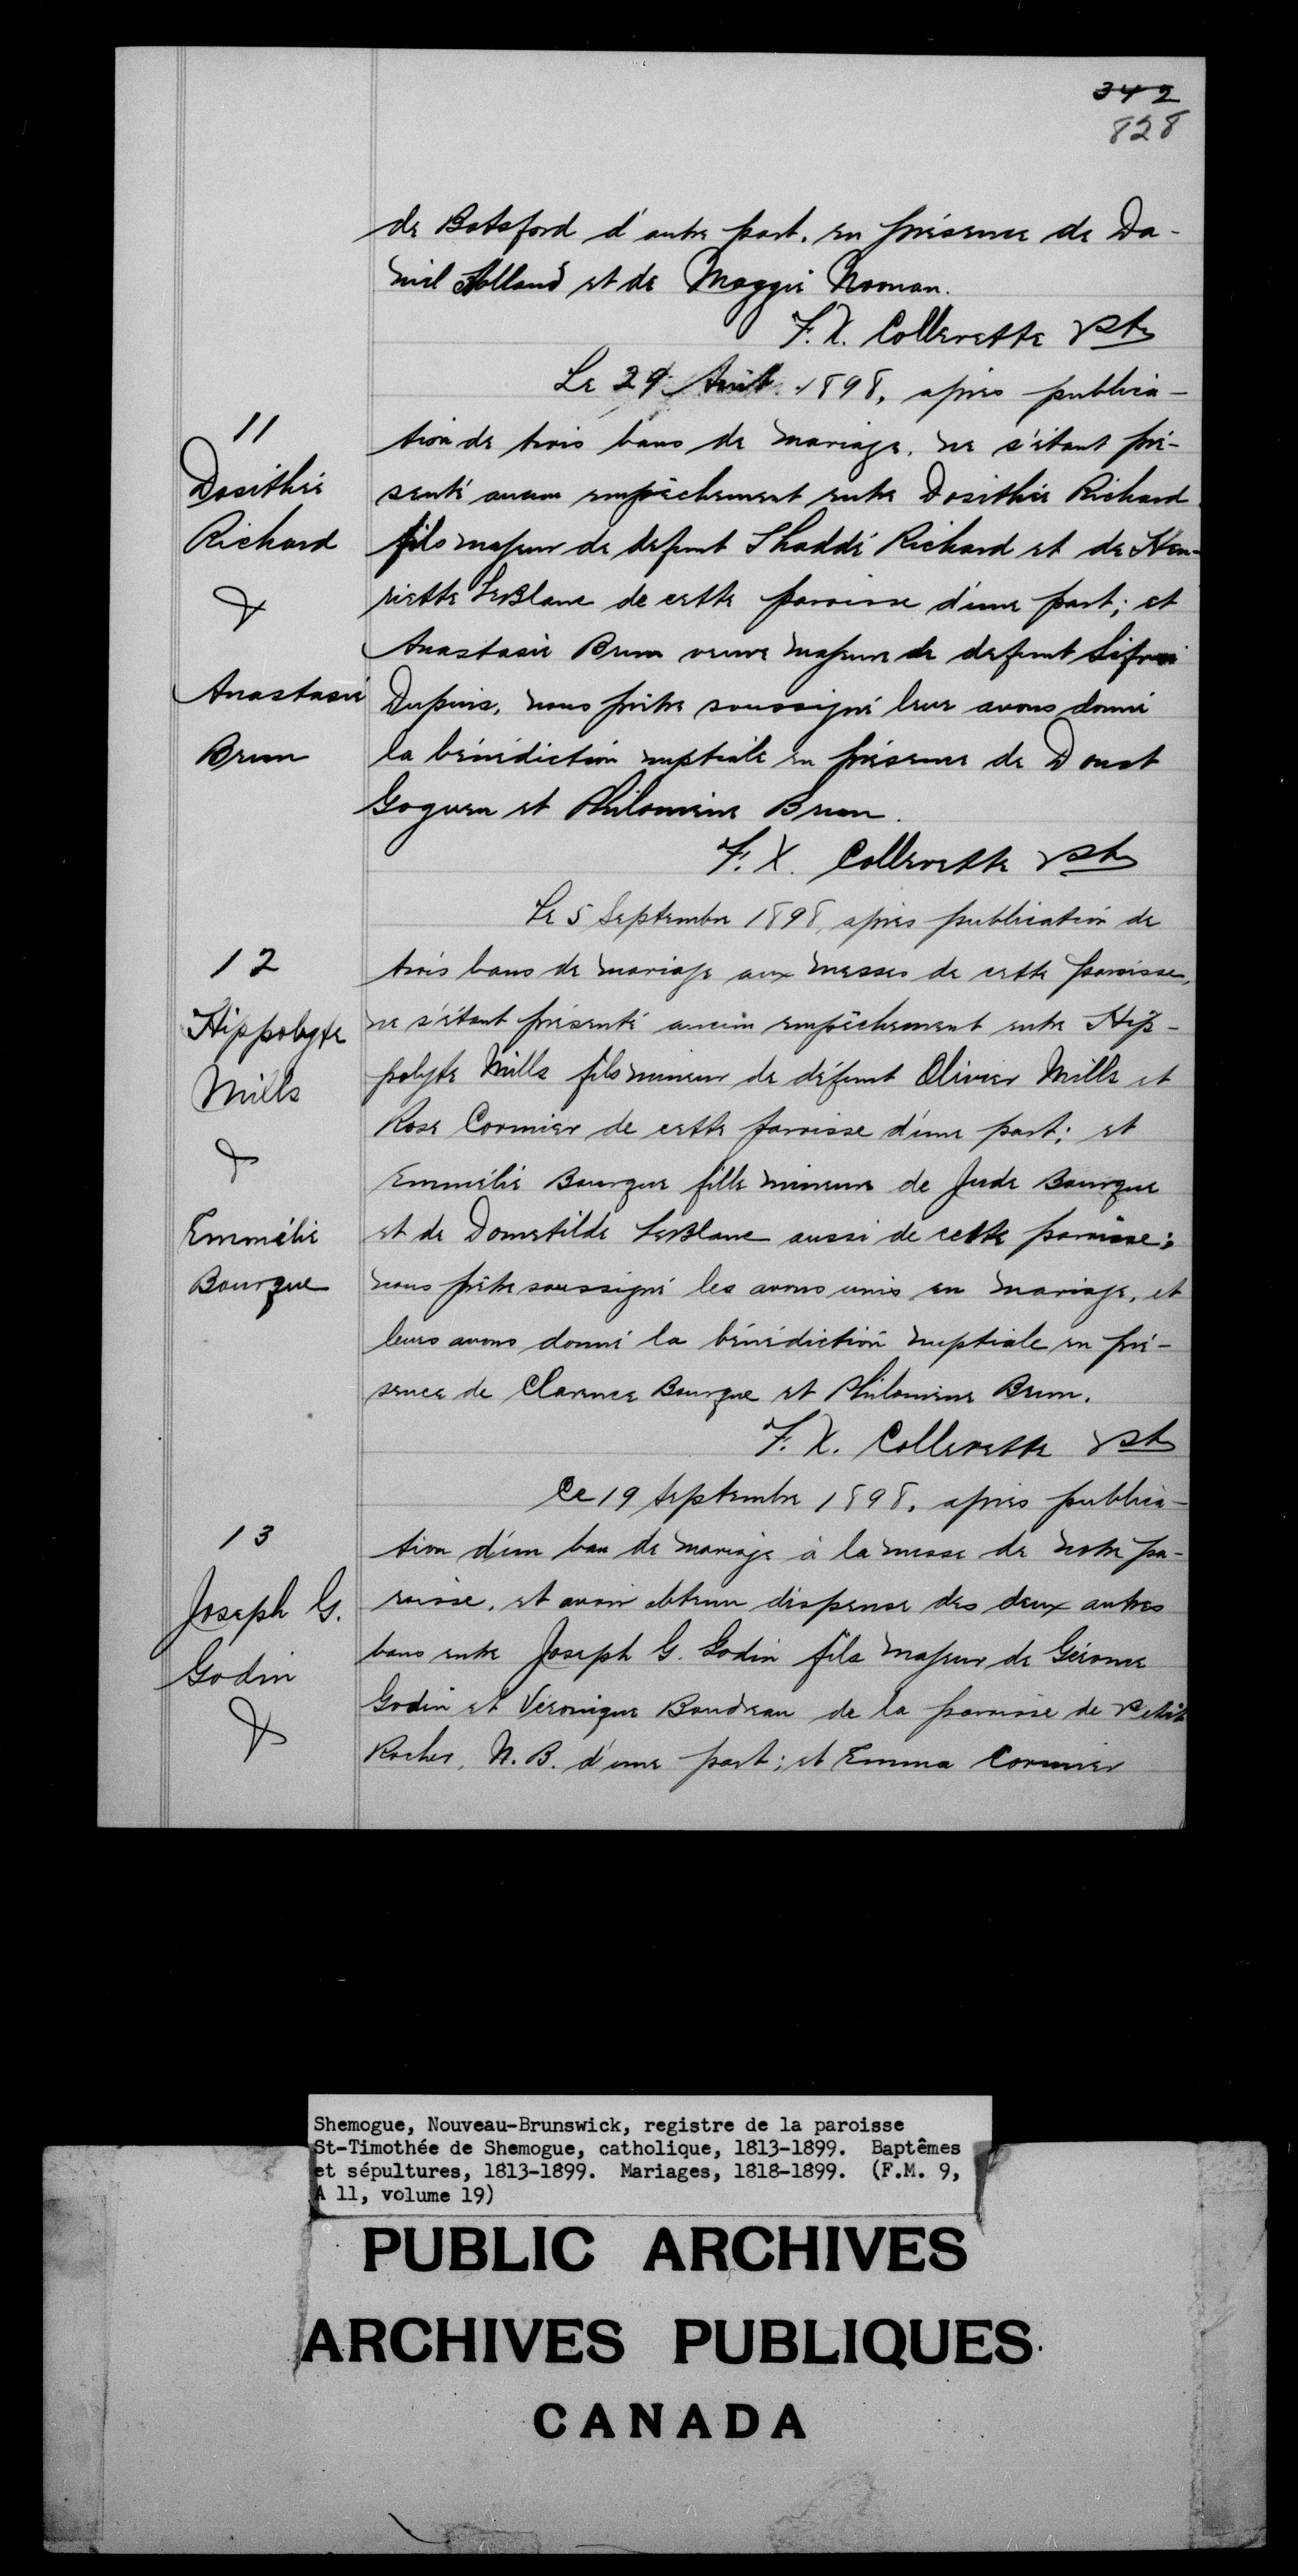 342
828
de Botsford d'autre part, en présence de Da-
niel Holland et de Maggie Noonan.
F. X. Collerette Ptr
Le 29 Août 1898, après publica-
11
tion de trois bans de mariage, ne s'étant pré-
Dosithée
senté aucun empêchement entre Dosithée Richard
Richard
fils majeur de defunt Thaddé Richard et de Hen-
&
riette LeBlanc de cette paroisse d'une part; et
Anastasie Brun veuve majeure de defunt
Anastasie
Dupuis, nous prêtre soussigné leur avons donné
Brun
la bénédiction nuptiale en présence de Donat
Goguen et Philomène Brun.
F. X. Collerette Ptr
Le 5 Septembre 1898, après publication de
12
trois bans de mariage aux messes de cette paroisse,
Hippolyte
ne s'étant présenté aucun empêchement entre Hip-
Mills
polyte Mills fils mineur de défunt Olivier Mills et
Rose Cormier de cette paroisse d'une part; et
&
Emmélie Bourque fille mineure de Jude Bourque
Emmélie
et de Dometilde LeBlanc aussi de cette paroisse;
Bourque
nous prêtre soussigné les avons unis en mariage, et
leurs avons donné la bénédiction nuptiale en pré-
sence de Clarence Bourque et Philomène Brun.
F. X. Collerette Ptr
Ce 19 Septembre 1898, après publica-
13
tion d'un ban de mariage à la messe de notre pa-
Joseph G.
roisse, et avoir obtenu dispense des deux autres
bans entre Joseph G. Godin fils majeur de Gérome
Godin
Godin et Véronique Boudreau de la paroisse de Petit
&
Rocher, N. B. d'une part; et Emma Cormier
Shemogue, Nouveau-Brunswick, registre de la paroisse
St-Timothée de Shemogue, catholique, 1813-1899. Baptêmes
et sépultures, 1813-1899. Mariages, 1818-1899. (F.M. 9,
A 11, volume 19)
PUBLIC ARCHIVES
ARCHIVES PUBLIQUES
CANADA